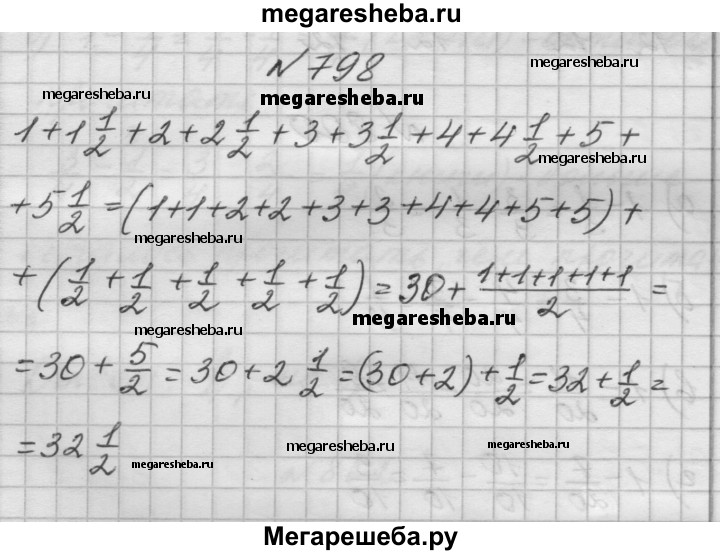 megaresheba.ru
N 798
megaresheba.ru
megaresheba.ru
megaresheba.ru
1+1 1/2 +2+2 1/2 +3+3 1/2 +4+4 1/2 +5+
megaresheba.ru
+5 1/2 =(1+1+2+2+3+3+4+4+5+5)+
megaresheba.ru
+(1/2 + 1/2 + 1/2 + 1/2 + 1/2)=30+ (1+1+1+1+1)/2 =
megaresheba.ru
megaresheba.ru
=30+ 5/2 =30+2 1/2 =(30+2)+ 1/2 =32+ 1/2 =
=32 1/2
megaresheba.ru
megaresheba.ru
megaresheba.ru
Мегарешеба.ру